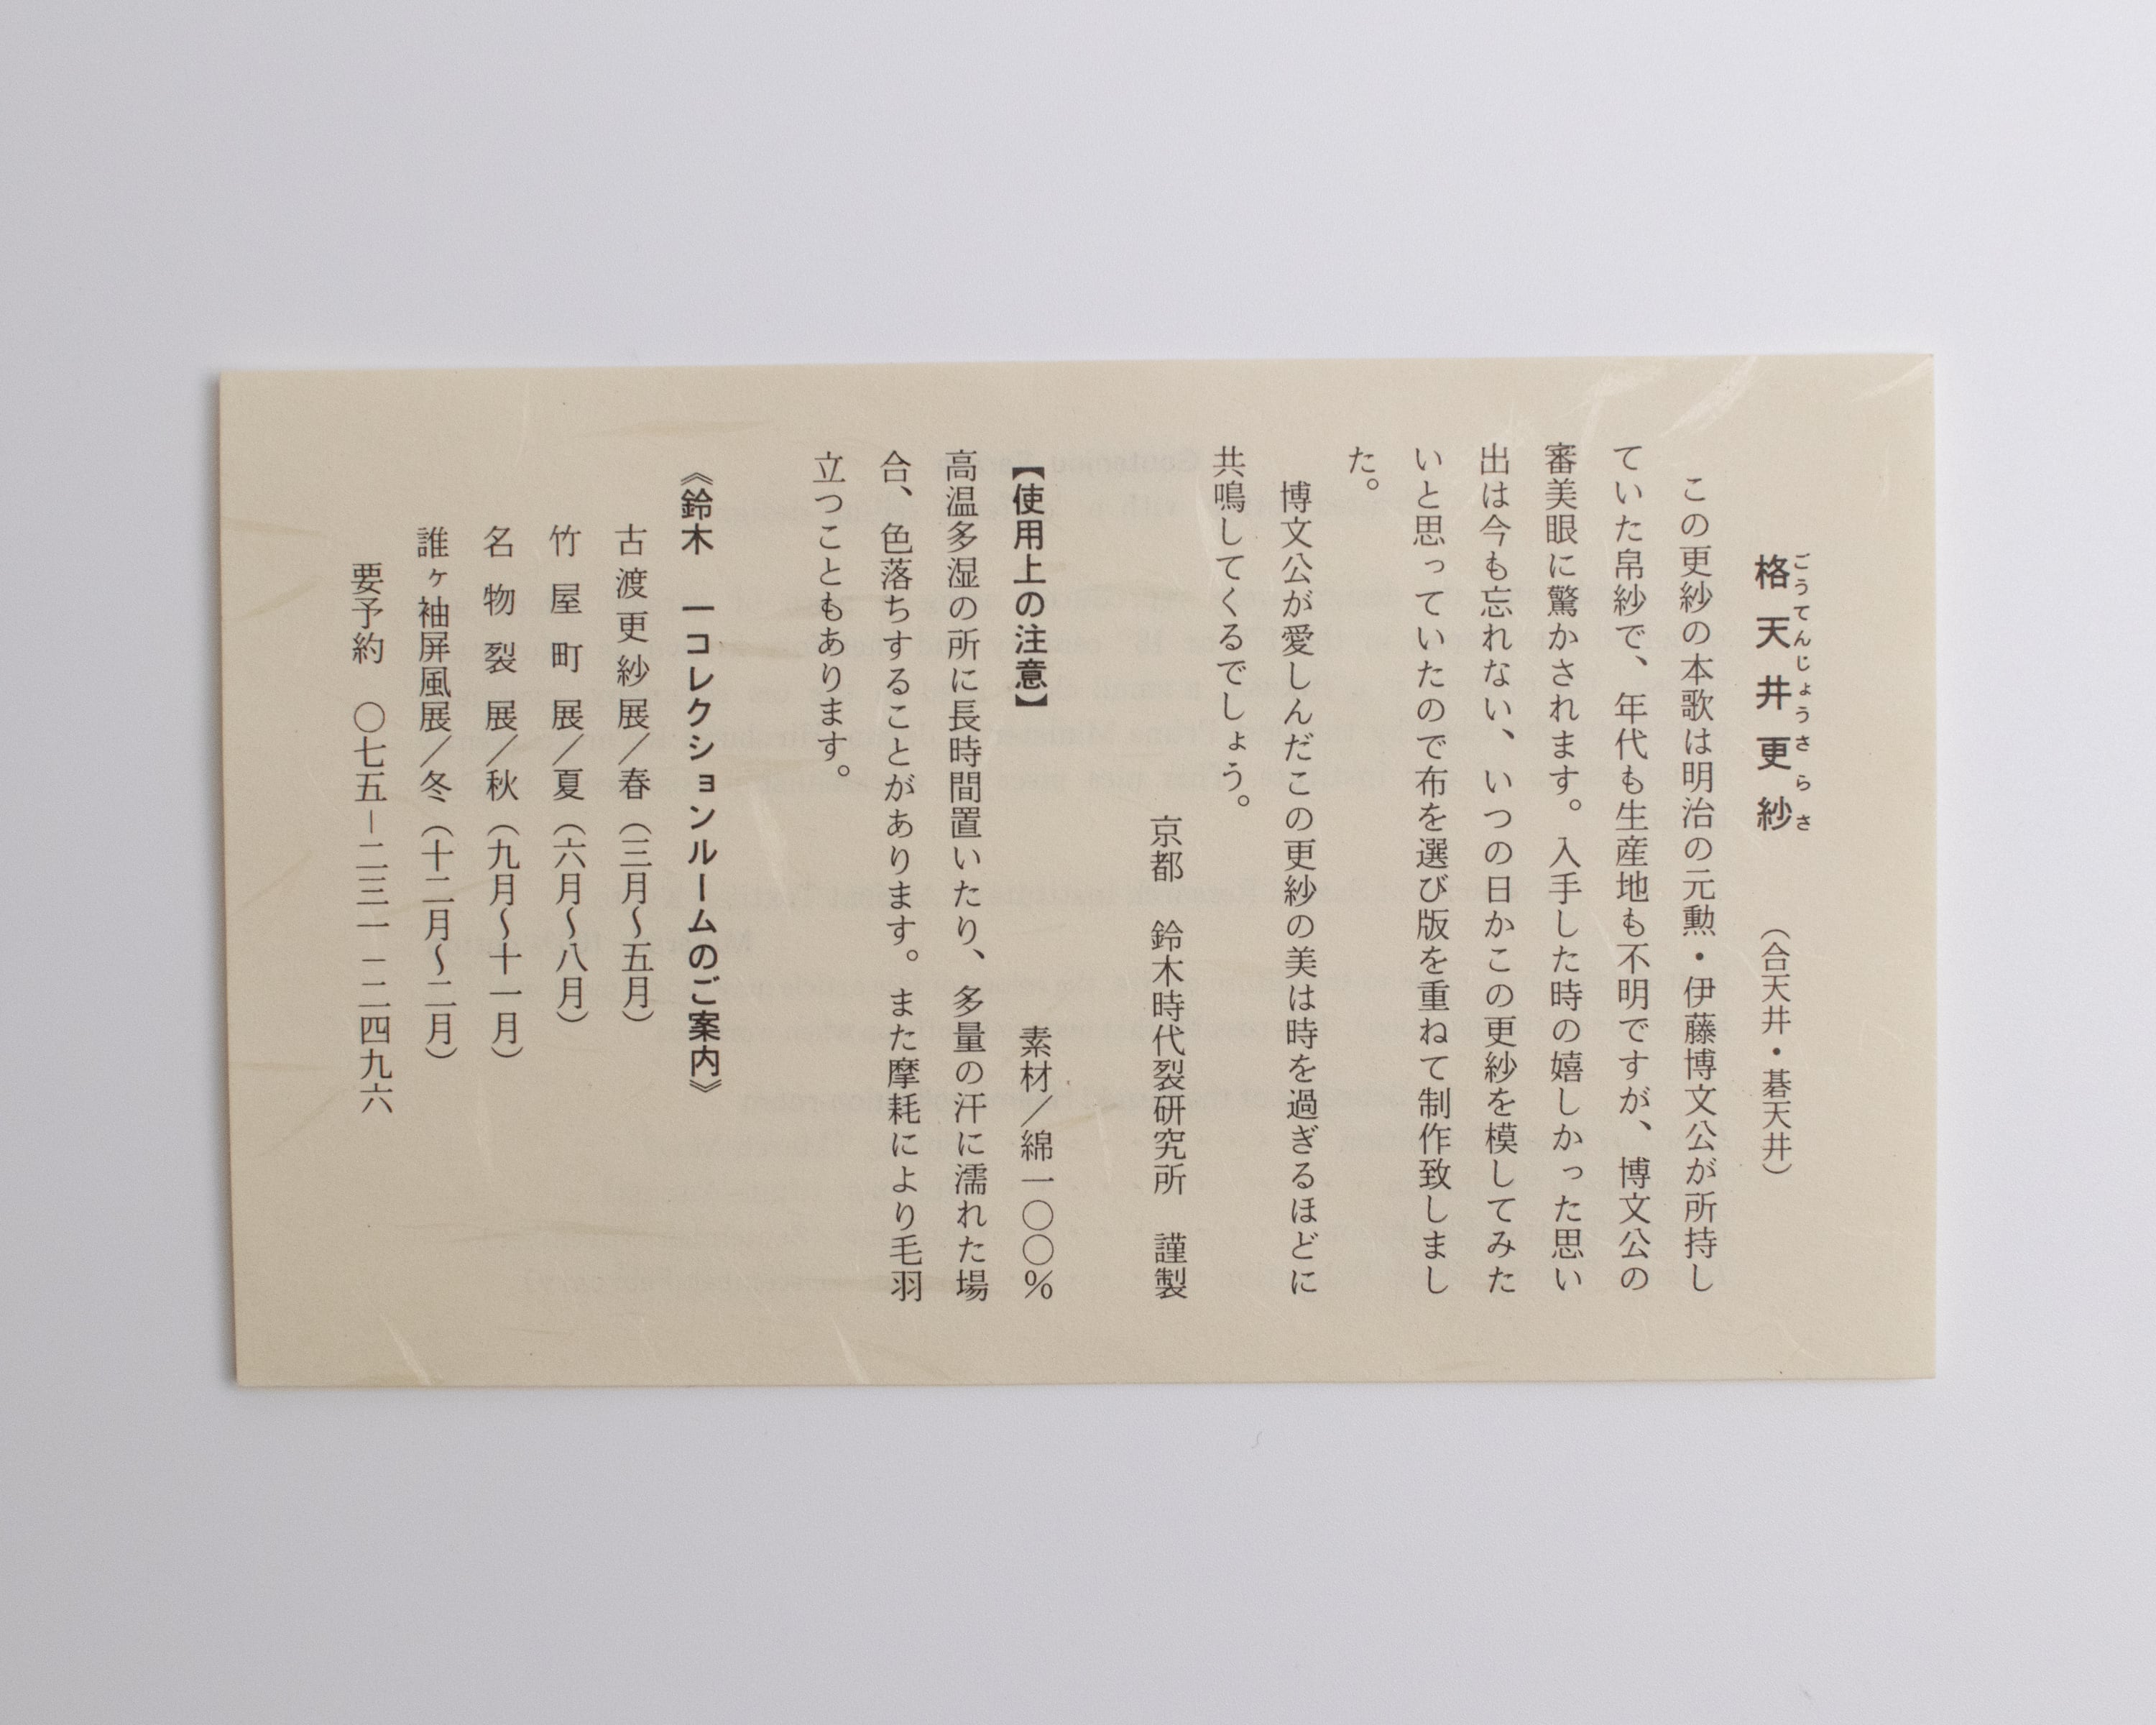 格天井更紗 （合天井・碁天井）
ごうてんじょうさらさ
この更紗の本歌は明治の元勲・伊藤博文公が所持し
ていた帛紗で、年代も生産地も不明ですが、博文公の
審美眼に驚かされます。入手した時の嬉しかった思い
出は今も忘れない、いつの日かこの更紗を模してみた
いと思っていたので布を選び版を重ねて制作致しまし
た。
博文公が愛しんだこの更紗の美は時を過ぎるほどに
共鳴してくるでしょう。
京都　鈴木時代裂研究所　謹製
【使用上の注意】 素材／綿一〇〇％
高温多湿の所に長時間置いたり、多量の汗に濡れた場
合、色落ちすることがあります。また摩耗により毛羽
立つこともあります。
《鈴木　一コレクションルームのご案内》
古渡更紗展／春（三月〜五月）
竹屋町展／夏（六月〜八月）
名物裂展／秋（九月〜十一月）
誰ヶ袖屏風展／冬（十二月〜二月）
要予約　〇七五－二三一－二四九六